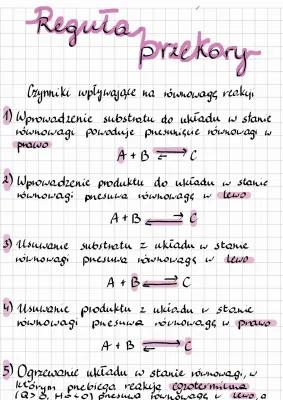 Reguła
przekory
Czynniki wpływające na równowagę reakcji
1) Wprowadzenie substratu do układu w stanie
równowagi powoduje przesunięcie równowagi w
prawo
A + B ⇄ C
2) Wprowadzenie produktu do układu w stanie
równowagi przesuwa równowagę w lewo
A + B ⇄ C
3) Usuwanie substratu z układu w stanie
równowagi przesuwa równowagę w lewo
A + B ⇄ C
4) Usuwanie produktu z układu w stanie
równowagi przesuwa równowagę w prawo
A + B ⇄ C
5) Ogrzewanie układu w stanie równowagi, w
którym przebiega reakcja egzotermiczna
przesuwa równowagę w lewo, a